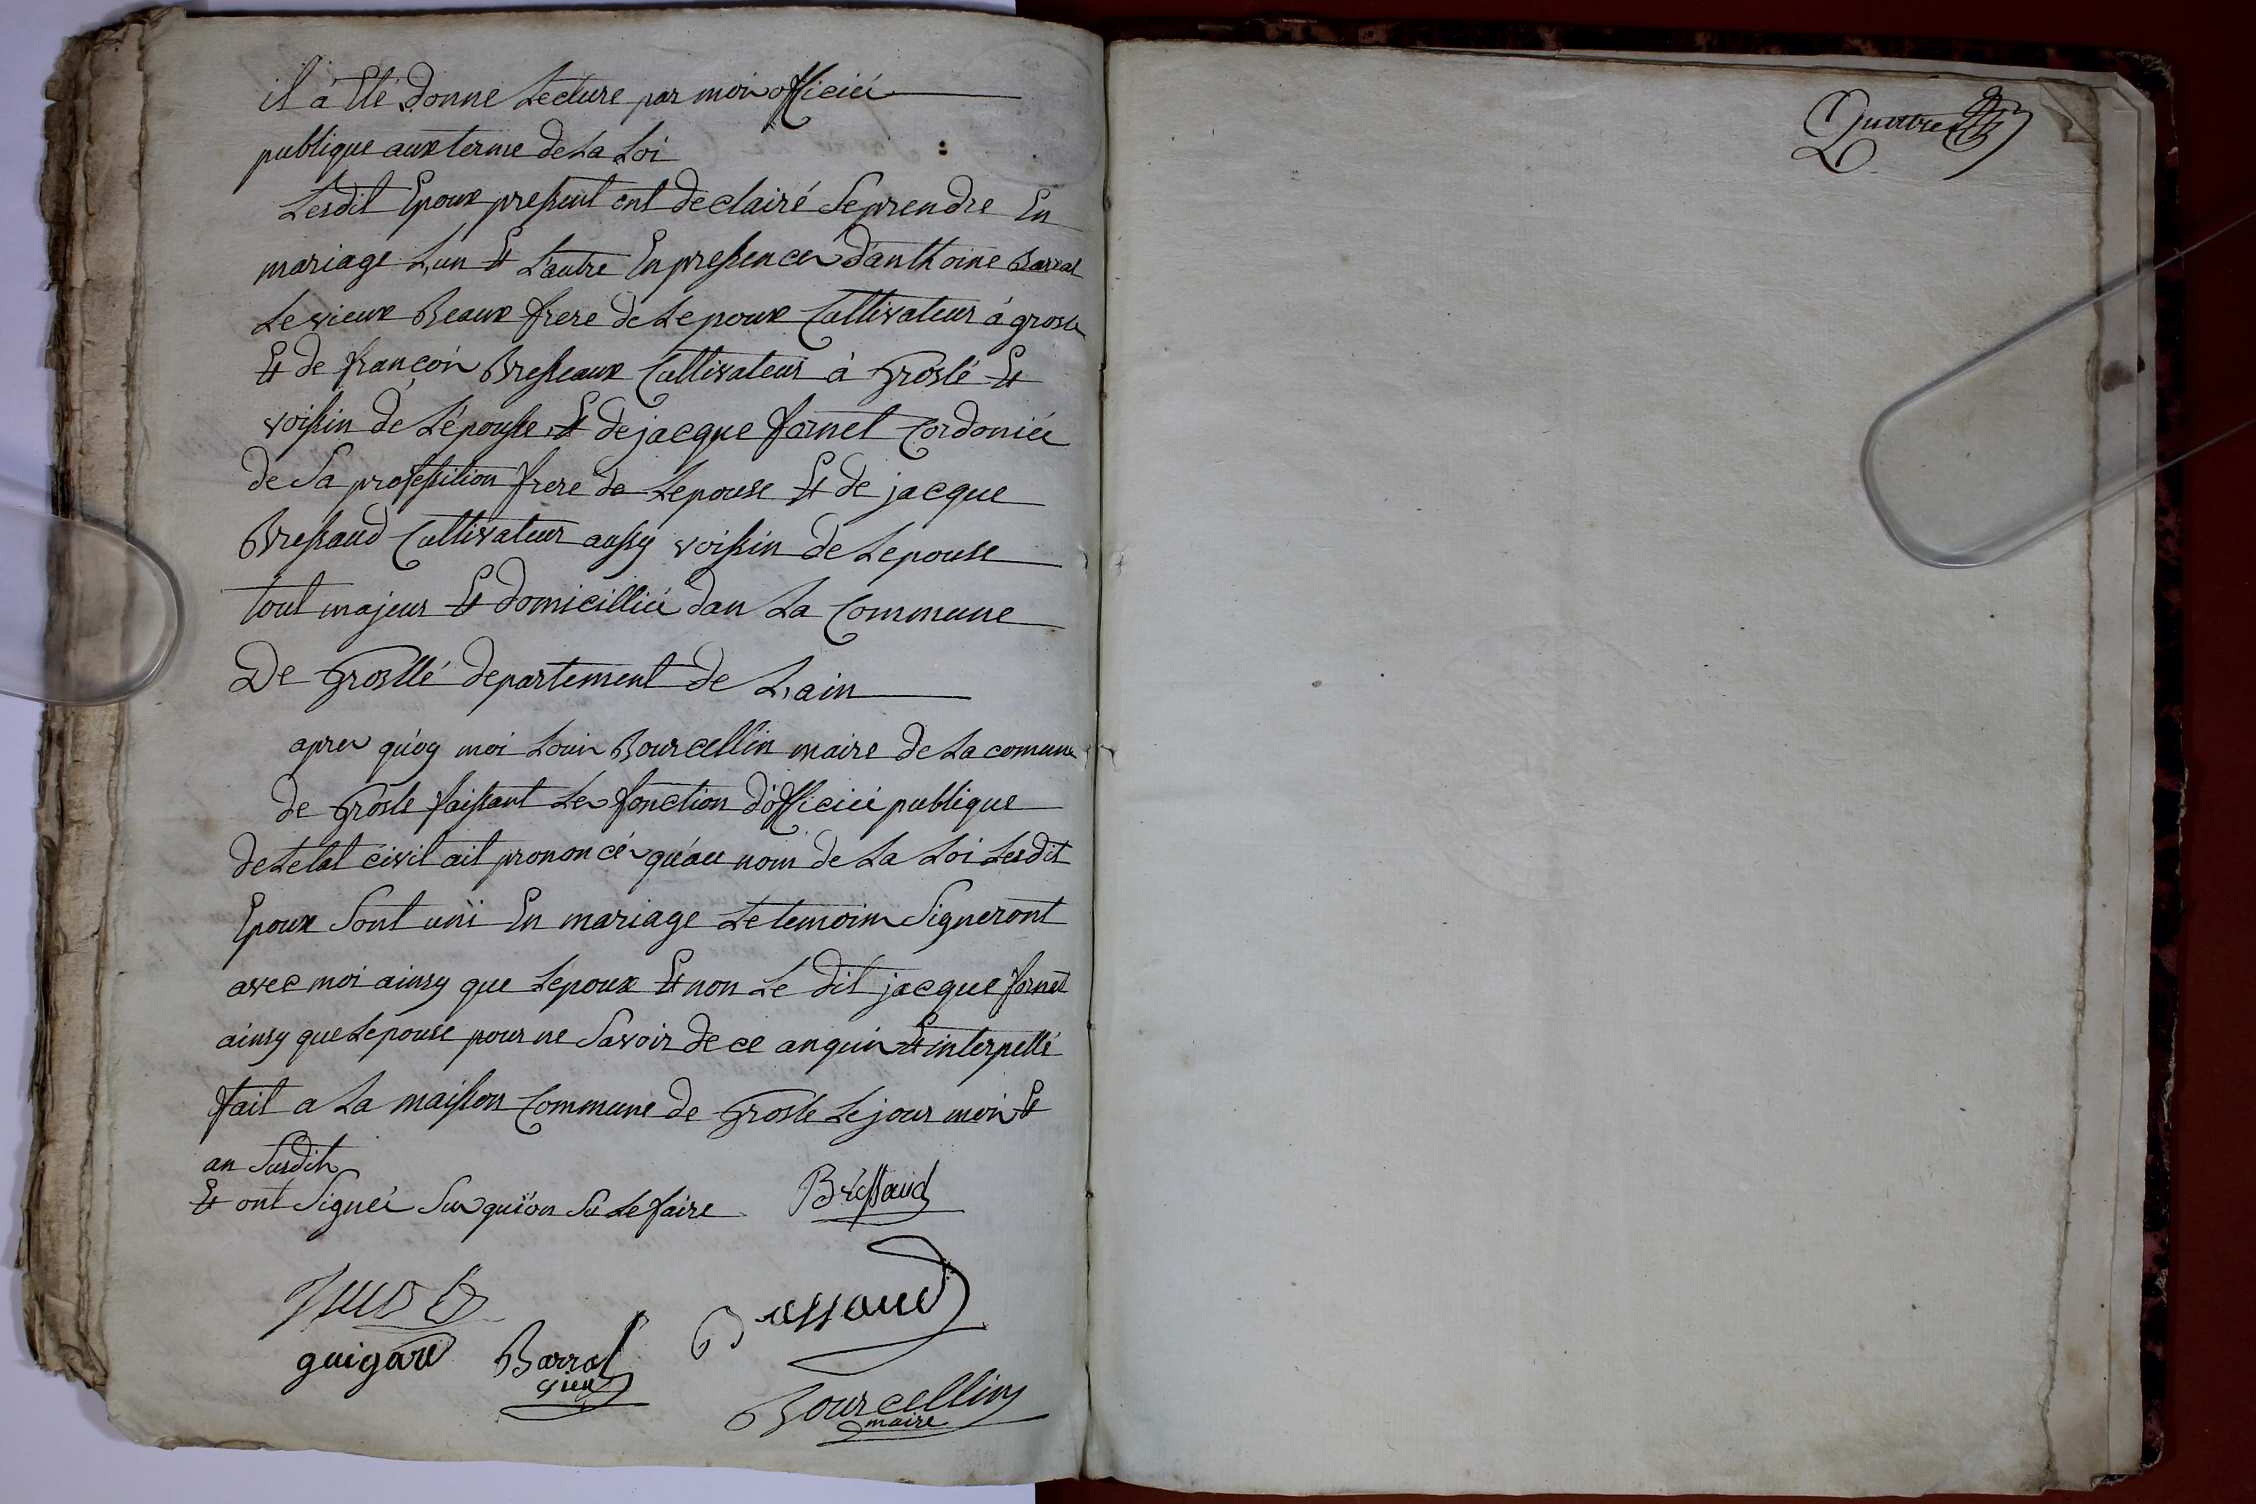 il a Eté donné Lecture par moi officié
publique aux terme de La Loi
Lesdit Epoux pressent ont declairé Se prendre En
mariage L,un Et L'autre En pressence d'anthoine Barral
Le vieux Beaux frere de Lepoux Cultivateur á grosle
Et de françois Bresseaux Cultivateur à Groslé Et
voissin de L'épousse Et de jacque fornet Cordonié
de Sa professition frere de Lepouse Et de jacque
Bressaud Cultivateur aussy voissin de Lepouse
tout majeur Et domicillié dan La Commune
De Grosllé departement de L,ain
apres qúoy moi Louis Bourcellin maire de La comune
de Grosle faissant Les fonction d'officié publique
de Létat civil ait prononcés qúau nom de La Loi Lesdit
Epoux Sont uni En mariage Le temoins Signeront
avec moi ainsy que Lepoux Et non Le dit jacque fornet
ainsy que Lepouse pour ne Savoir de ce anquis Et interpellé
fait a La maisson Commune de Grosle Le jour mois Et
an Susdit
Et ont Signeé Sux qui on Su Le faire
Bressaud
guigard
Barral
vieux
Bressaud
Bourcellin
maire